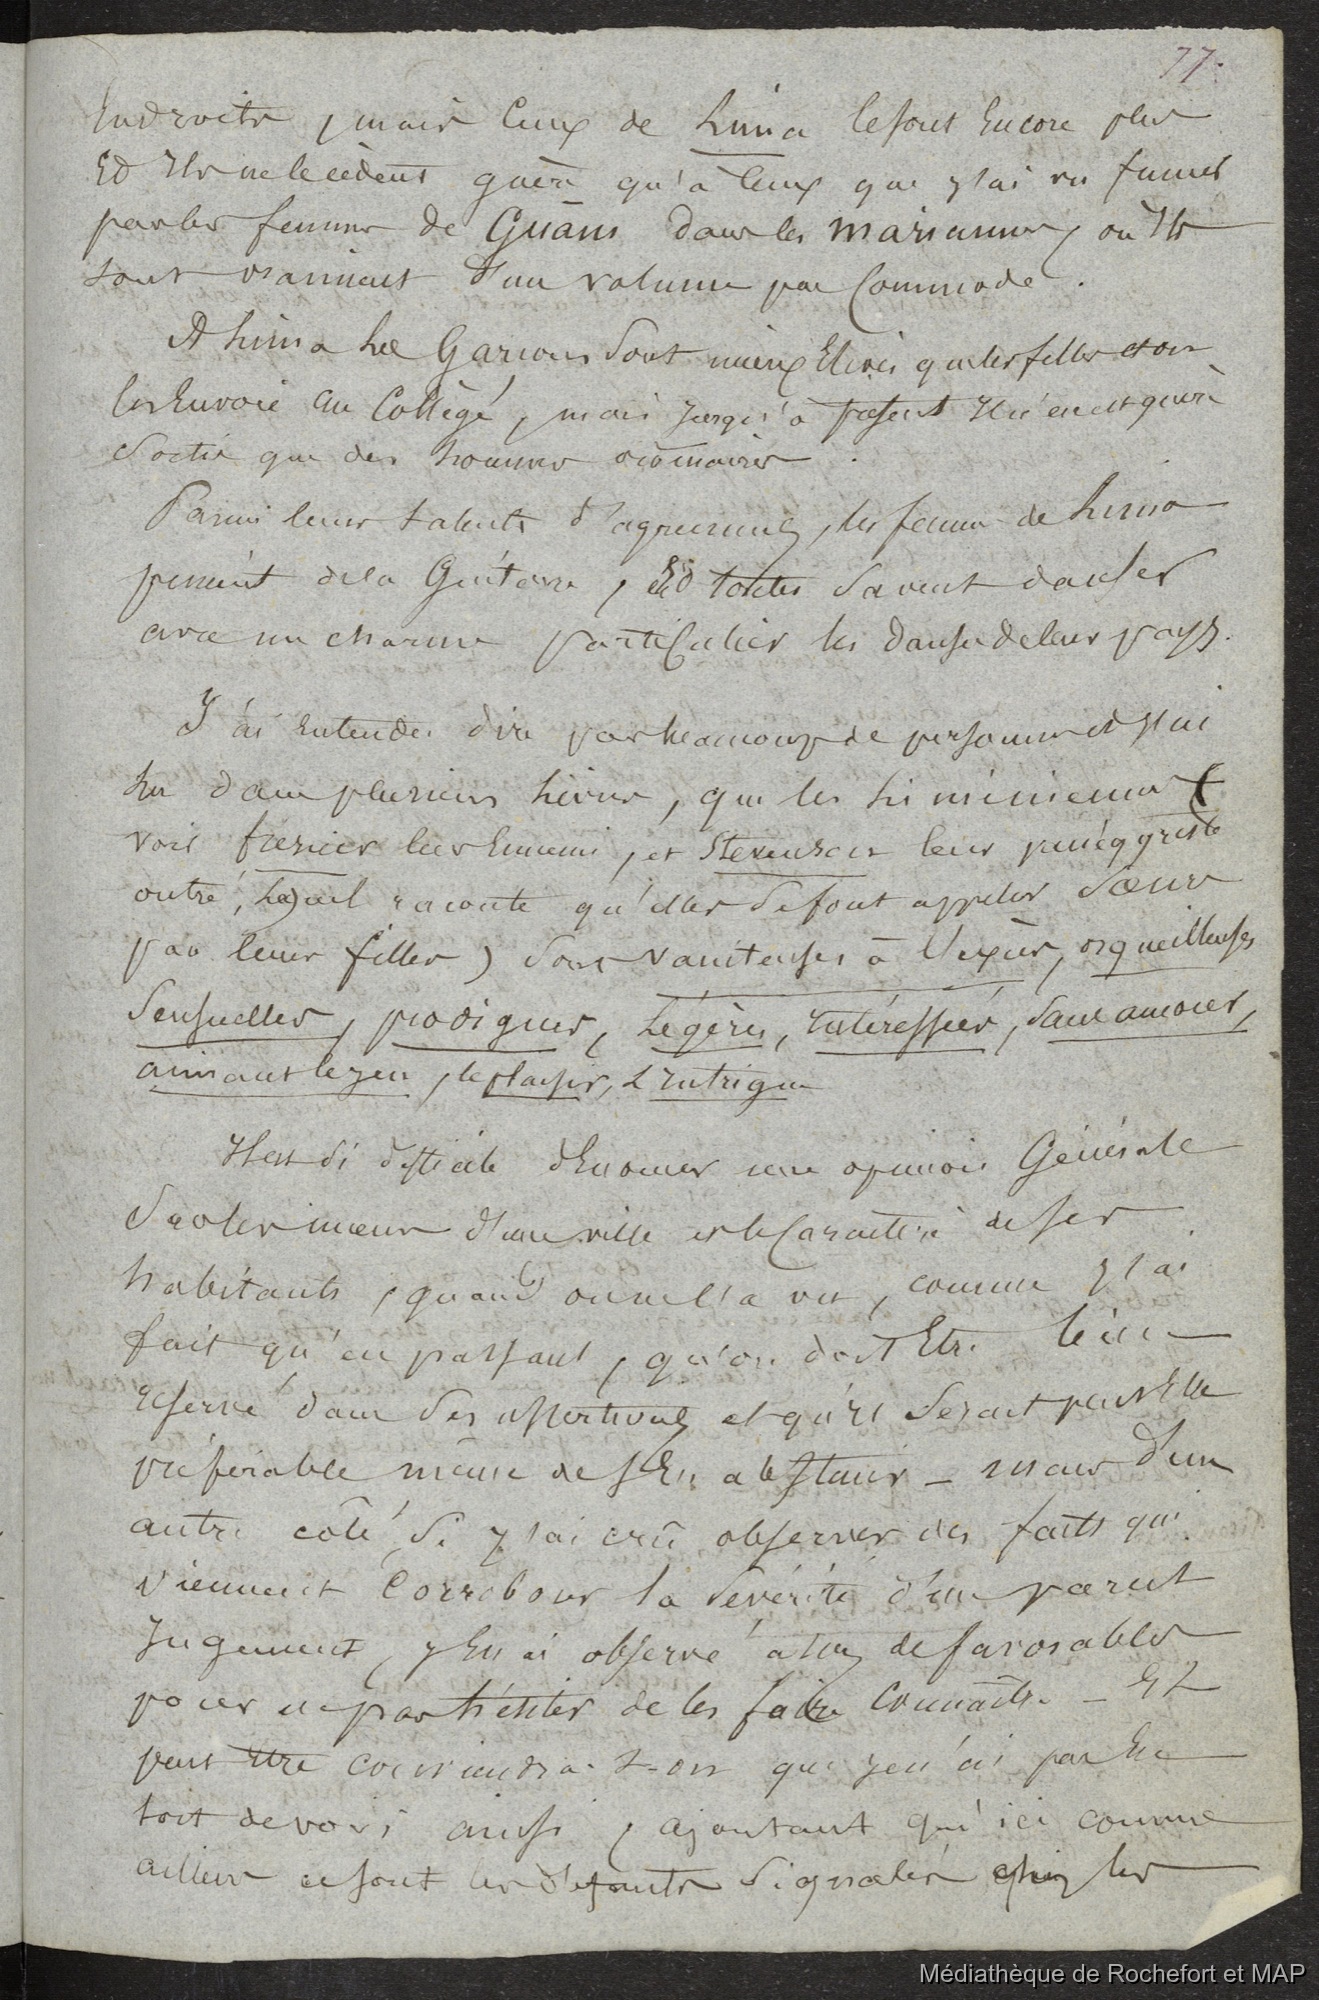 77.
Endroits, mais Ceux de Lima le sont Encore plus
Et Ils ne le cèdent guère qu'à Ceux que j'ai vu fumer
par les femmes de Guam dans les mariannes, où Ils
sont vraiment d'un volume peu Commode.
A Lima Les Garçons sont mieux Elevés que les filles et on
les Envoie au Collège, mais jusqu'à présent Il n'en est guère
sorti que des hommes ordinaires.
Parmi leurs talents d'agrément, les femmes de Lima
pincent de la Guitare, Et toutes savent danser
avec un charme particulier les danses de leur pays.
J'ai Entendu dire par beaucoup de personnes et j'ai
lu dans plusieurs Livres, que les Liméniennes (
voir frezier leur Ennemi, et Stevenson leur panégyriste
outré, Lequel raconte qu'elles se font appeler Sœurs
par leurs filles) sont vaniteuses à l'excès, orgueilleuses
Sensuelles, prodigues, Légères, Intéressées, sans amour,
aimant le jeu, le plaisir, L'Intrigue
Il est si difficile d'Enoncer une opinion Générale
sur les mœurs d'une ville et le Caractère de ses
habitants, quand on ne l'a vu, comme j'ai
fait qu'en passant, qu'on doit Etre bien
réservé dans ses assertions et qu'il serait peut Etre
préférable même de s'En abstenir _ mais d'un
autre côté, si j'ai crû observer des faits qui
viennent Corroborer la sévérité d'un pareil
Jugement, j'En ai observé assez de favorables
pour ne pas hésiter de les faire Connaître _ Et
peut être conviendra-t-on que je n'ai pas Eu
tort de voir ainsi, ajoutant qu'ici comme
ailleurs ce sont les défauts signalés chez les
Médiathèque de Rochefort et MAP